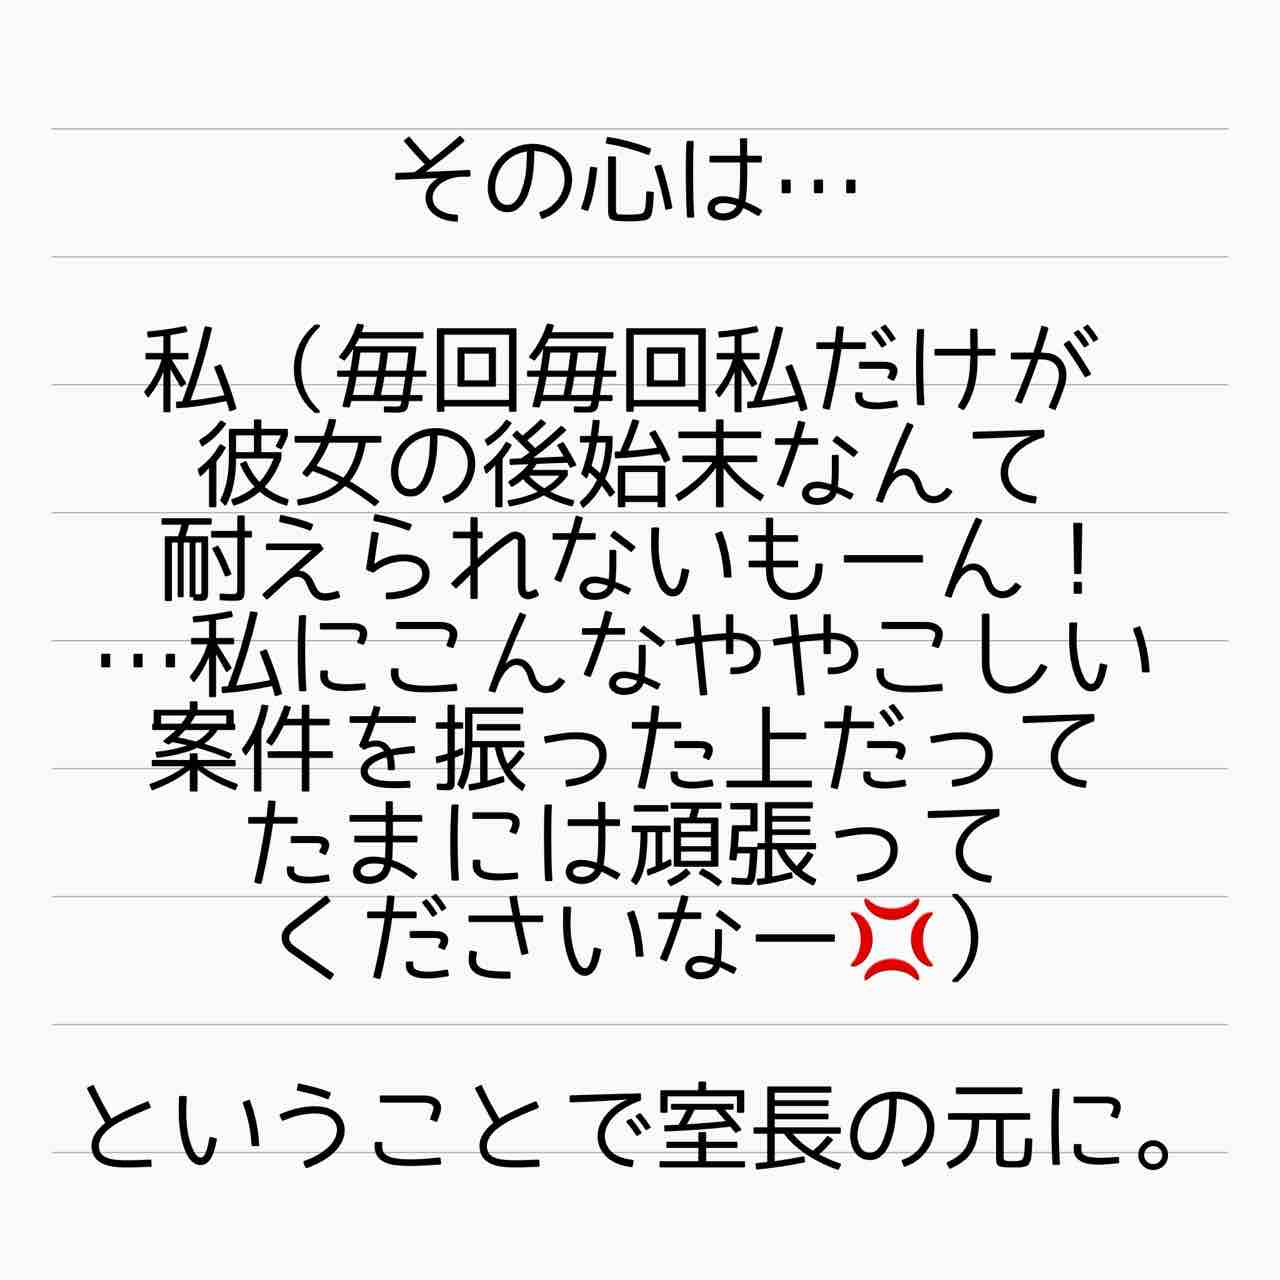 その心は…
私（毎回毎回私だけが
彼女の後始末なんて
耐えられないもーん！
…私にこんなややこしい
案件を振った上だって
たまには頑張って
くださいなー💢）
ということで室長の元に。